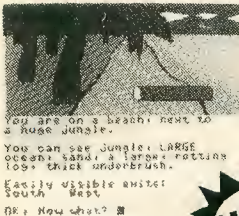 You are on a beach, next to
a huge jungle.
You can see jungle, LARGE
ocean, sand, a large, rotting
log, thick underbrush.
Easily visible exits:
South West
OK, Now what?